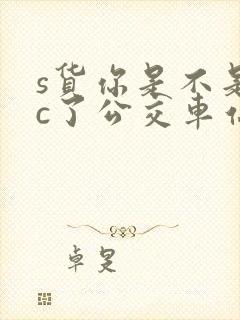 s货你是不是
c了公交车
卓旻